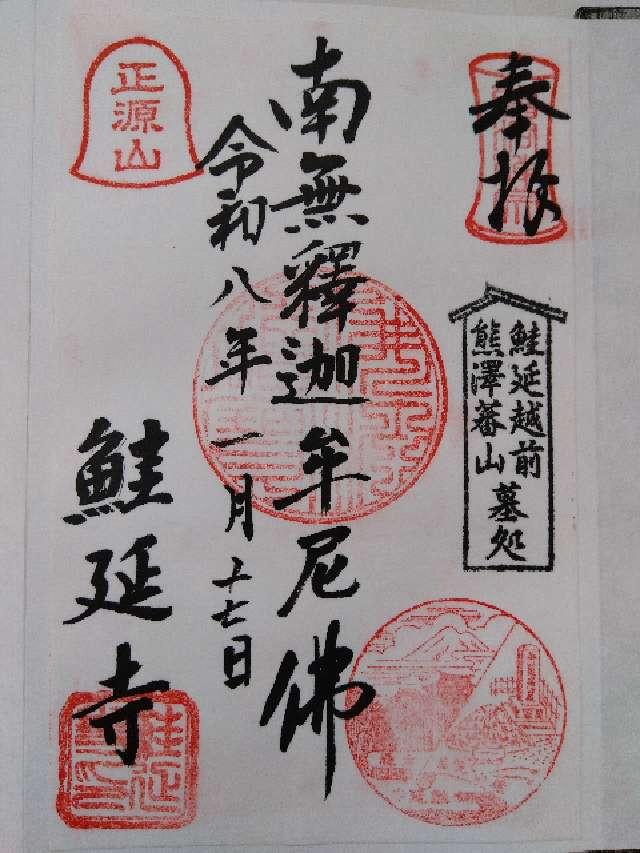 奉拝
鮭延越前
熊澤蕃山
墓処
南無釋迦牟尼佛
令和八年一月十七日
正源山
鮭延寺